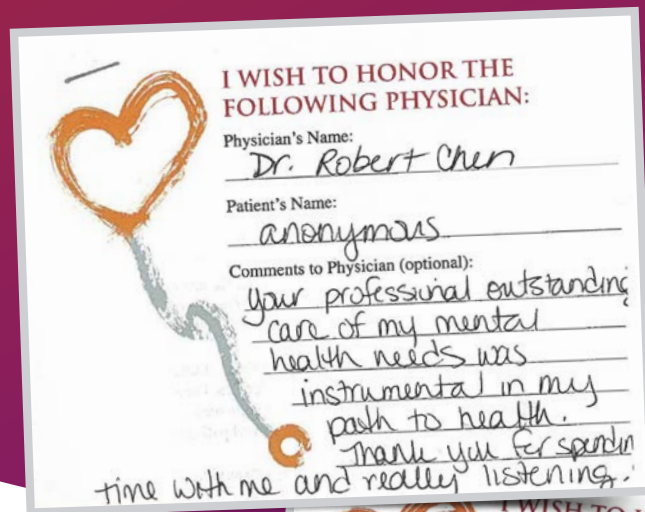 I WISH TO HONOR THE
FOLLOWING PHYSICIAN:
Physician's Name:
Dr. Robert Chen
Patient's Name:
anonymous
Comments to Physician (optional):
your professional outstanding
care of my mental
health needs was
instrumental in my
path to health.
Thank you for spendin
time with me and really listening.
I WISH TO